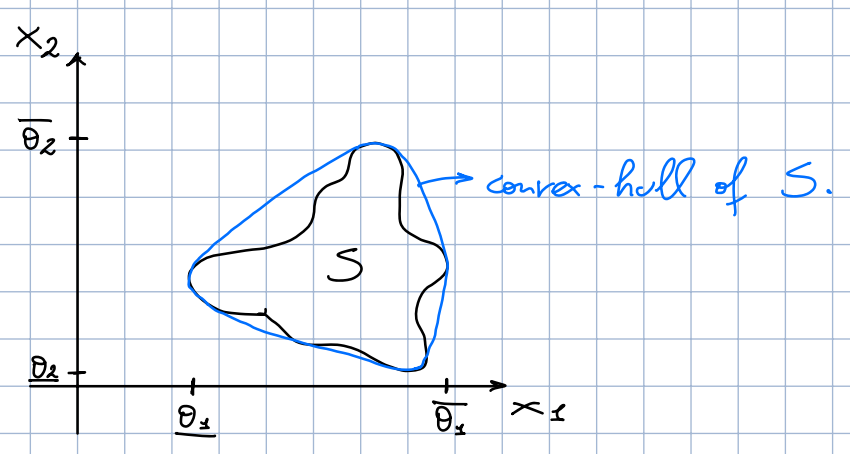 x₂
θ̅₂
convex-hull of S.
S
θ̲₂
θ̲₁
θ̅₁
x₁